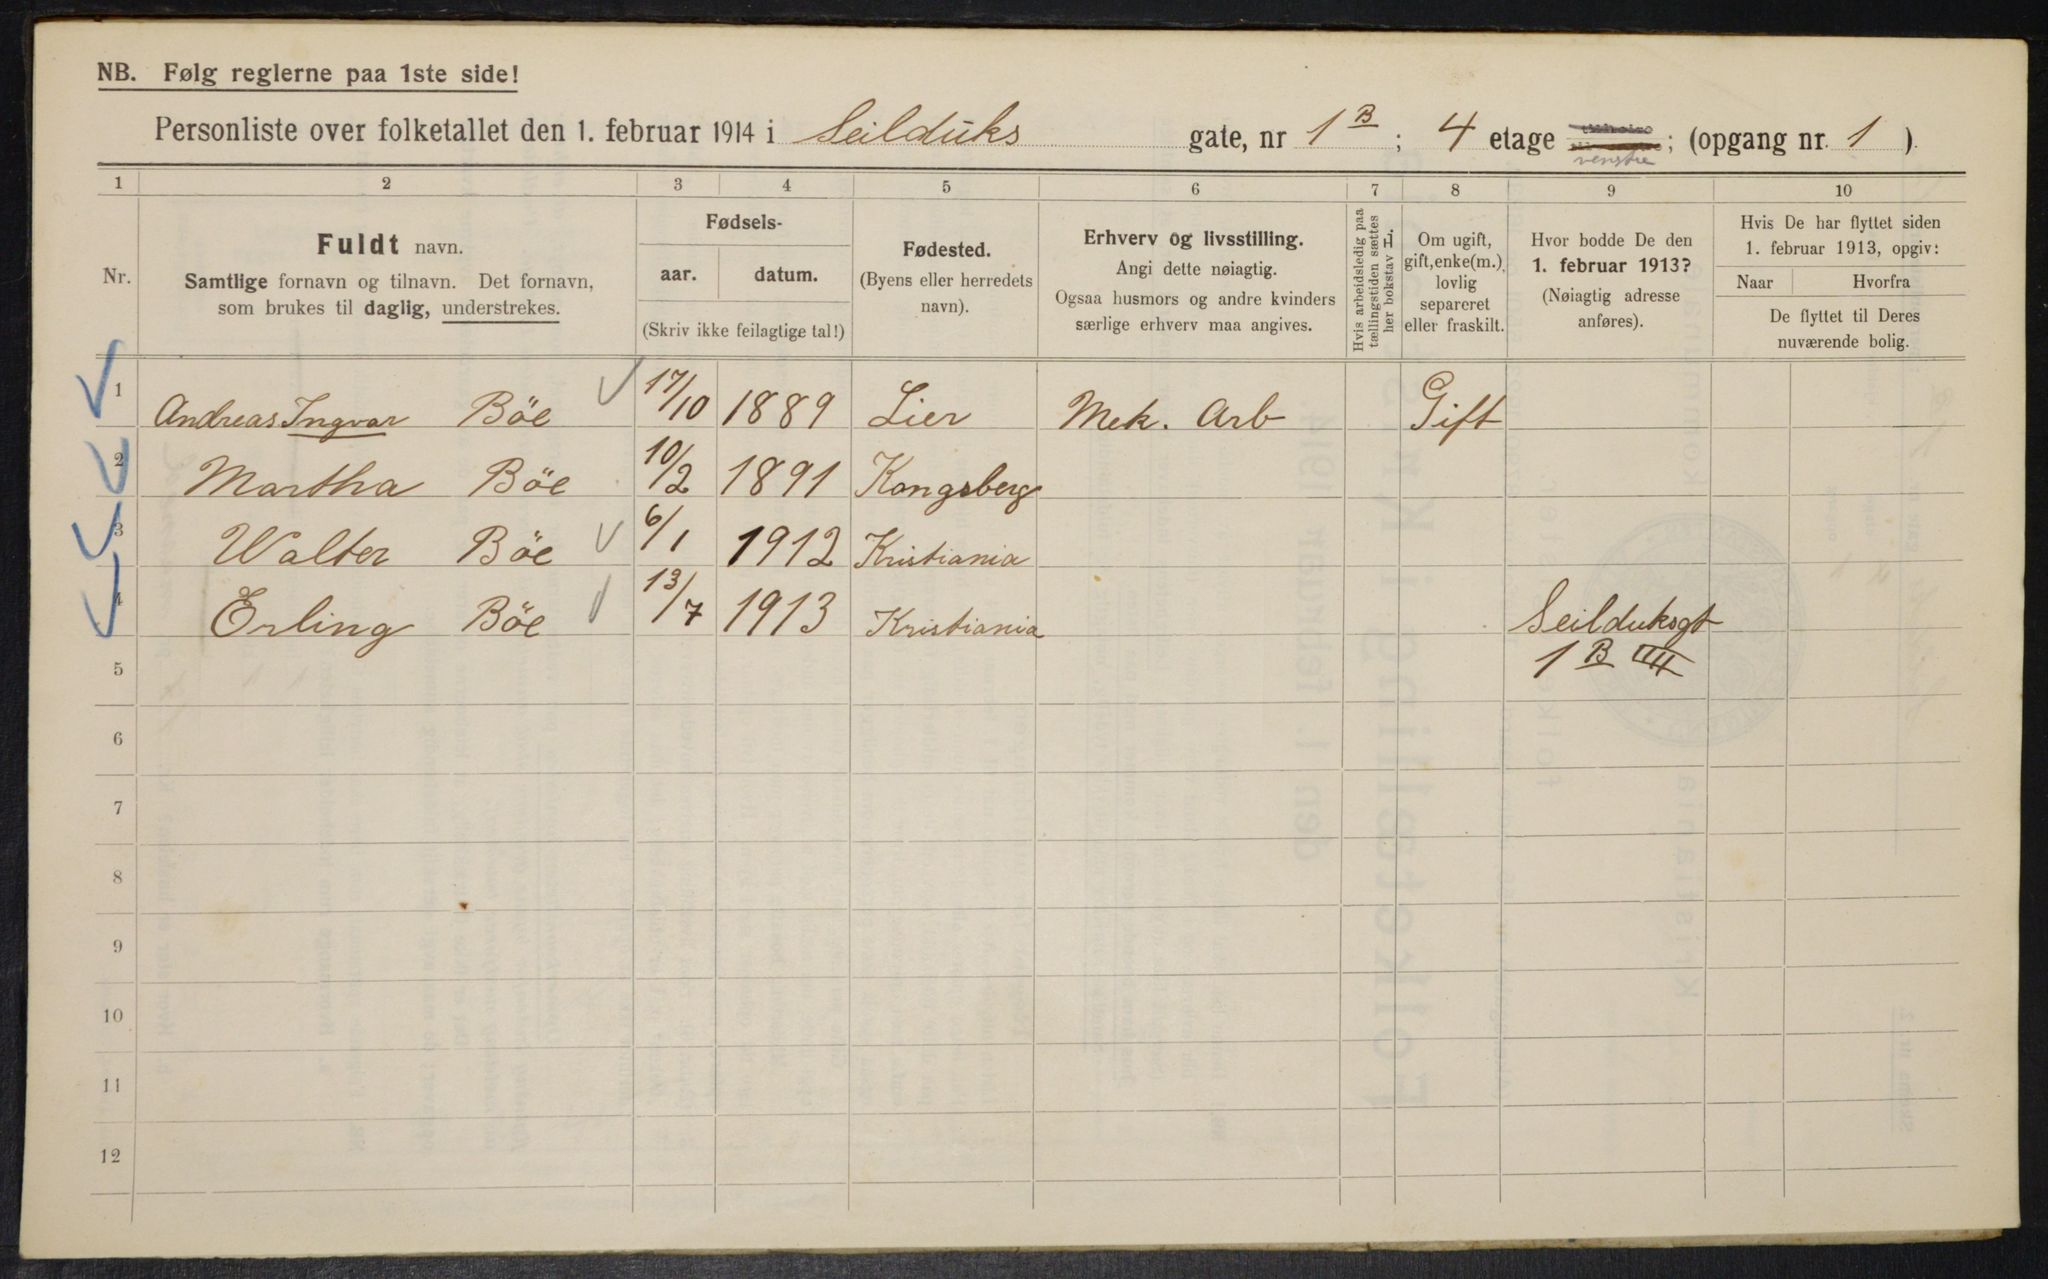 NB. Følg reglerne paa 1ste side!
Personliste over folketallet den 1. februar 1914 i Seilduks gate, nr 1 B; 4 etage venstre; (opgang nr. 1)
1 2 3 4 5 6 7 8 9 10
Nr.
Fuldt navn.
Samtlige fornavn og tilnavn. Det fornavn,
som brukes til daglig, understrekes.
Fødsels-
aar. datum.
(Skriv ikke feilagtige tal!)
Fødested.
(Byens eller herredets
navn).
Erhverv og livsstilling.
Angi dette nøiagtig.
Ogsaa husmors og andre kvinders
særlige erhverv maa angives.
Hvis arbeidsledig paa
tællingstiden sættes
her bokstav L.
Om ugift,
gift, enke(m.),
lovlig
separeret
eller fraskilt.
Hvor bodde De den
1. februar 1913?
(Nøiagtig adresse
anføres).
Hvis De har flyttet siden
1. februar 1913, opgiv:
Naar Hvorfra
De flyttet til Deres
nuværende bolig.
1 Andreas Ingvar Böe 17/10 1889 Lier Mek. Arb Gift
2 Martha Böe 10/2 1891 Kongsberg
3 Walter Böe 6/1 1912 Kristiania
4 Erling Böe 13/7 1913 Kristiania Seilduksgt
5 1 B IIII
6
7
8
9
10
11
12